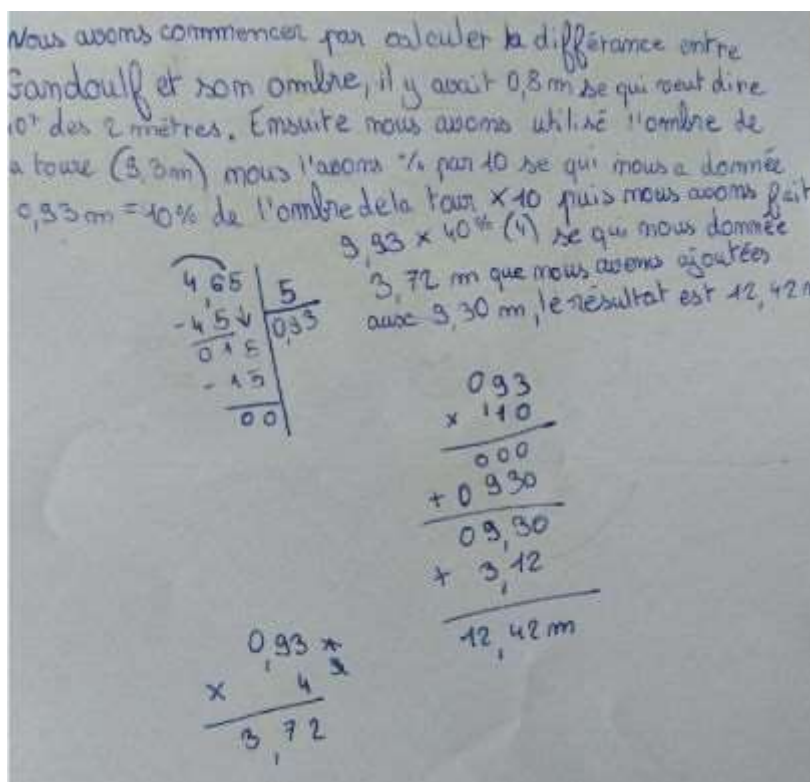 Nous avons commencer par calculer la différance entre
Gandoulf et son ombre, il y avait 0,8 m se qui veut dire
des 2 mètres. Ensuite nous avons utilisé l'ombre de
a toure (9,3m) nous l'avons % par 10 se qui nous a donnée
0,93 m = 10% de l'ombre de la tour × 10 puis nous avons fait
9,93 × 40% (4) se qui nous donnée
3,72 m que nous avons ajoutées
aux 9,30 m, le résultat est 12,42 m
4,65 | 5
- 4 5 ↓ | 0,93
0 1 5
- 1 5
0 0
093
× 110
000
+ 0930
09,30
+ 3,12
12,42 m
0,93
× 4
3,72